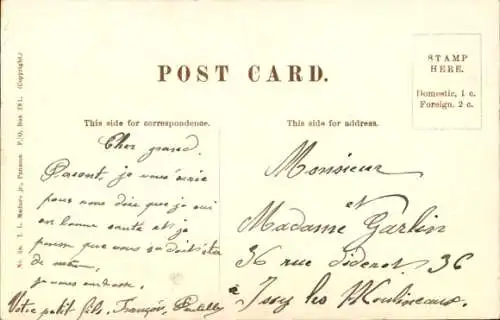 POST CARD.
STAMP
HERE.
Domestic, 1 c.
Foreign. 2 c.
This side for correspondence.
This side for address.
Cher grand
je vous écris
pour vous dire que je suis
en bonne santé et je
pense que vous
de même,
je vous embrasse,
Votre petit fils, François,
Monsieur
et
Madame Garlin
36 rue Diderot 36
à Issy les Moulineaux.
(Copyright.)
P.O. Box 181.